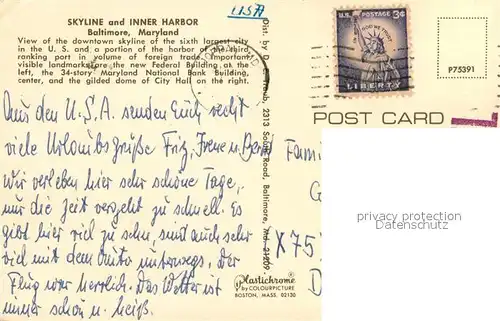 USA
SKYLINE and INNER HARBOR
Baltimore, Maryland
View of the downtown skyline of the sixth largest city
in the U. S. and a portion of the harbor of the third
ranking port in volume of foreign trade. Important
visible landmarks: the new Federal Building at the
left, the 34-story Maryland National Bank Building,
center, and the gilded dome of City Hall on the right.
Aus den U.S.A. senden Euch recht
viele Urlaubsgrüße Fritz, Irene u.
Wir verleben hier sehr schöne Tage,
nur die Zeit vergeht zu schnell. Es
gibt hier viel zu sehn, sind auch sehr
viel mit dem Auto unterwegs. Der
Flug war herrlich. Das Wetter ist
immer schön u. heiß.
Dist. by D. E. Traub, 2313 South Road, Baltimore, Md. 21209
Plastichrome
by COLOURPICTURE
BOSTON, MASS. 02130
U.S. POSTAGE 3¢
IN GOD WE TRUST
LIBERTY
P75391
POST CARD
Fami
G
X75
D
privacy protection
Datenschutz